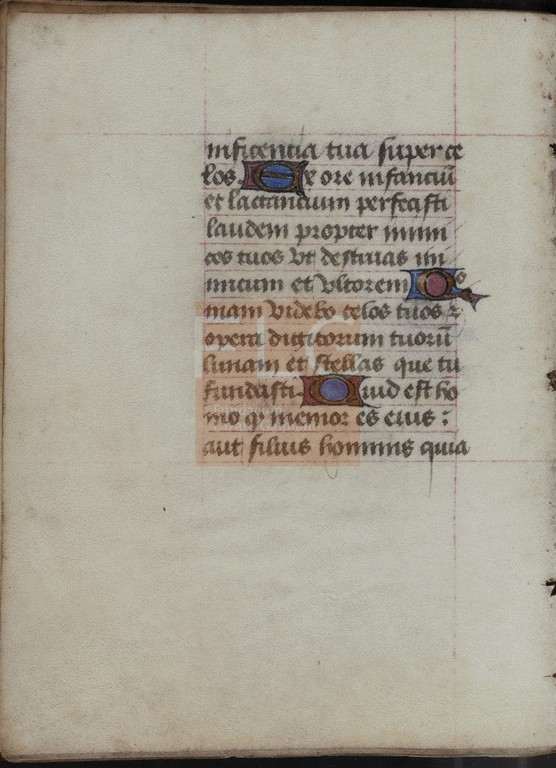 nificencia tua super ce
los. Ex ore infanciū
et lactancium perfecisti
laudem propter inimi
cos tuos vt destruas ini
micum et vltorem Qō
niam videbo celos tuos ⁊
opera digitorum tuorū
lunam et stellas que tu
fundasti. Quid est ho
mo q memor es eius :
aut filius hominis quia
FLG